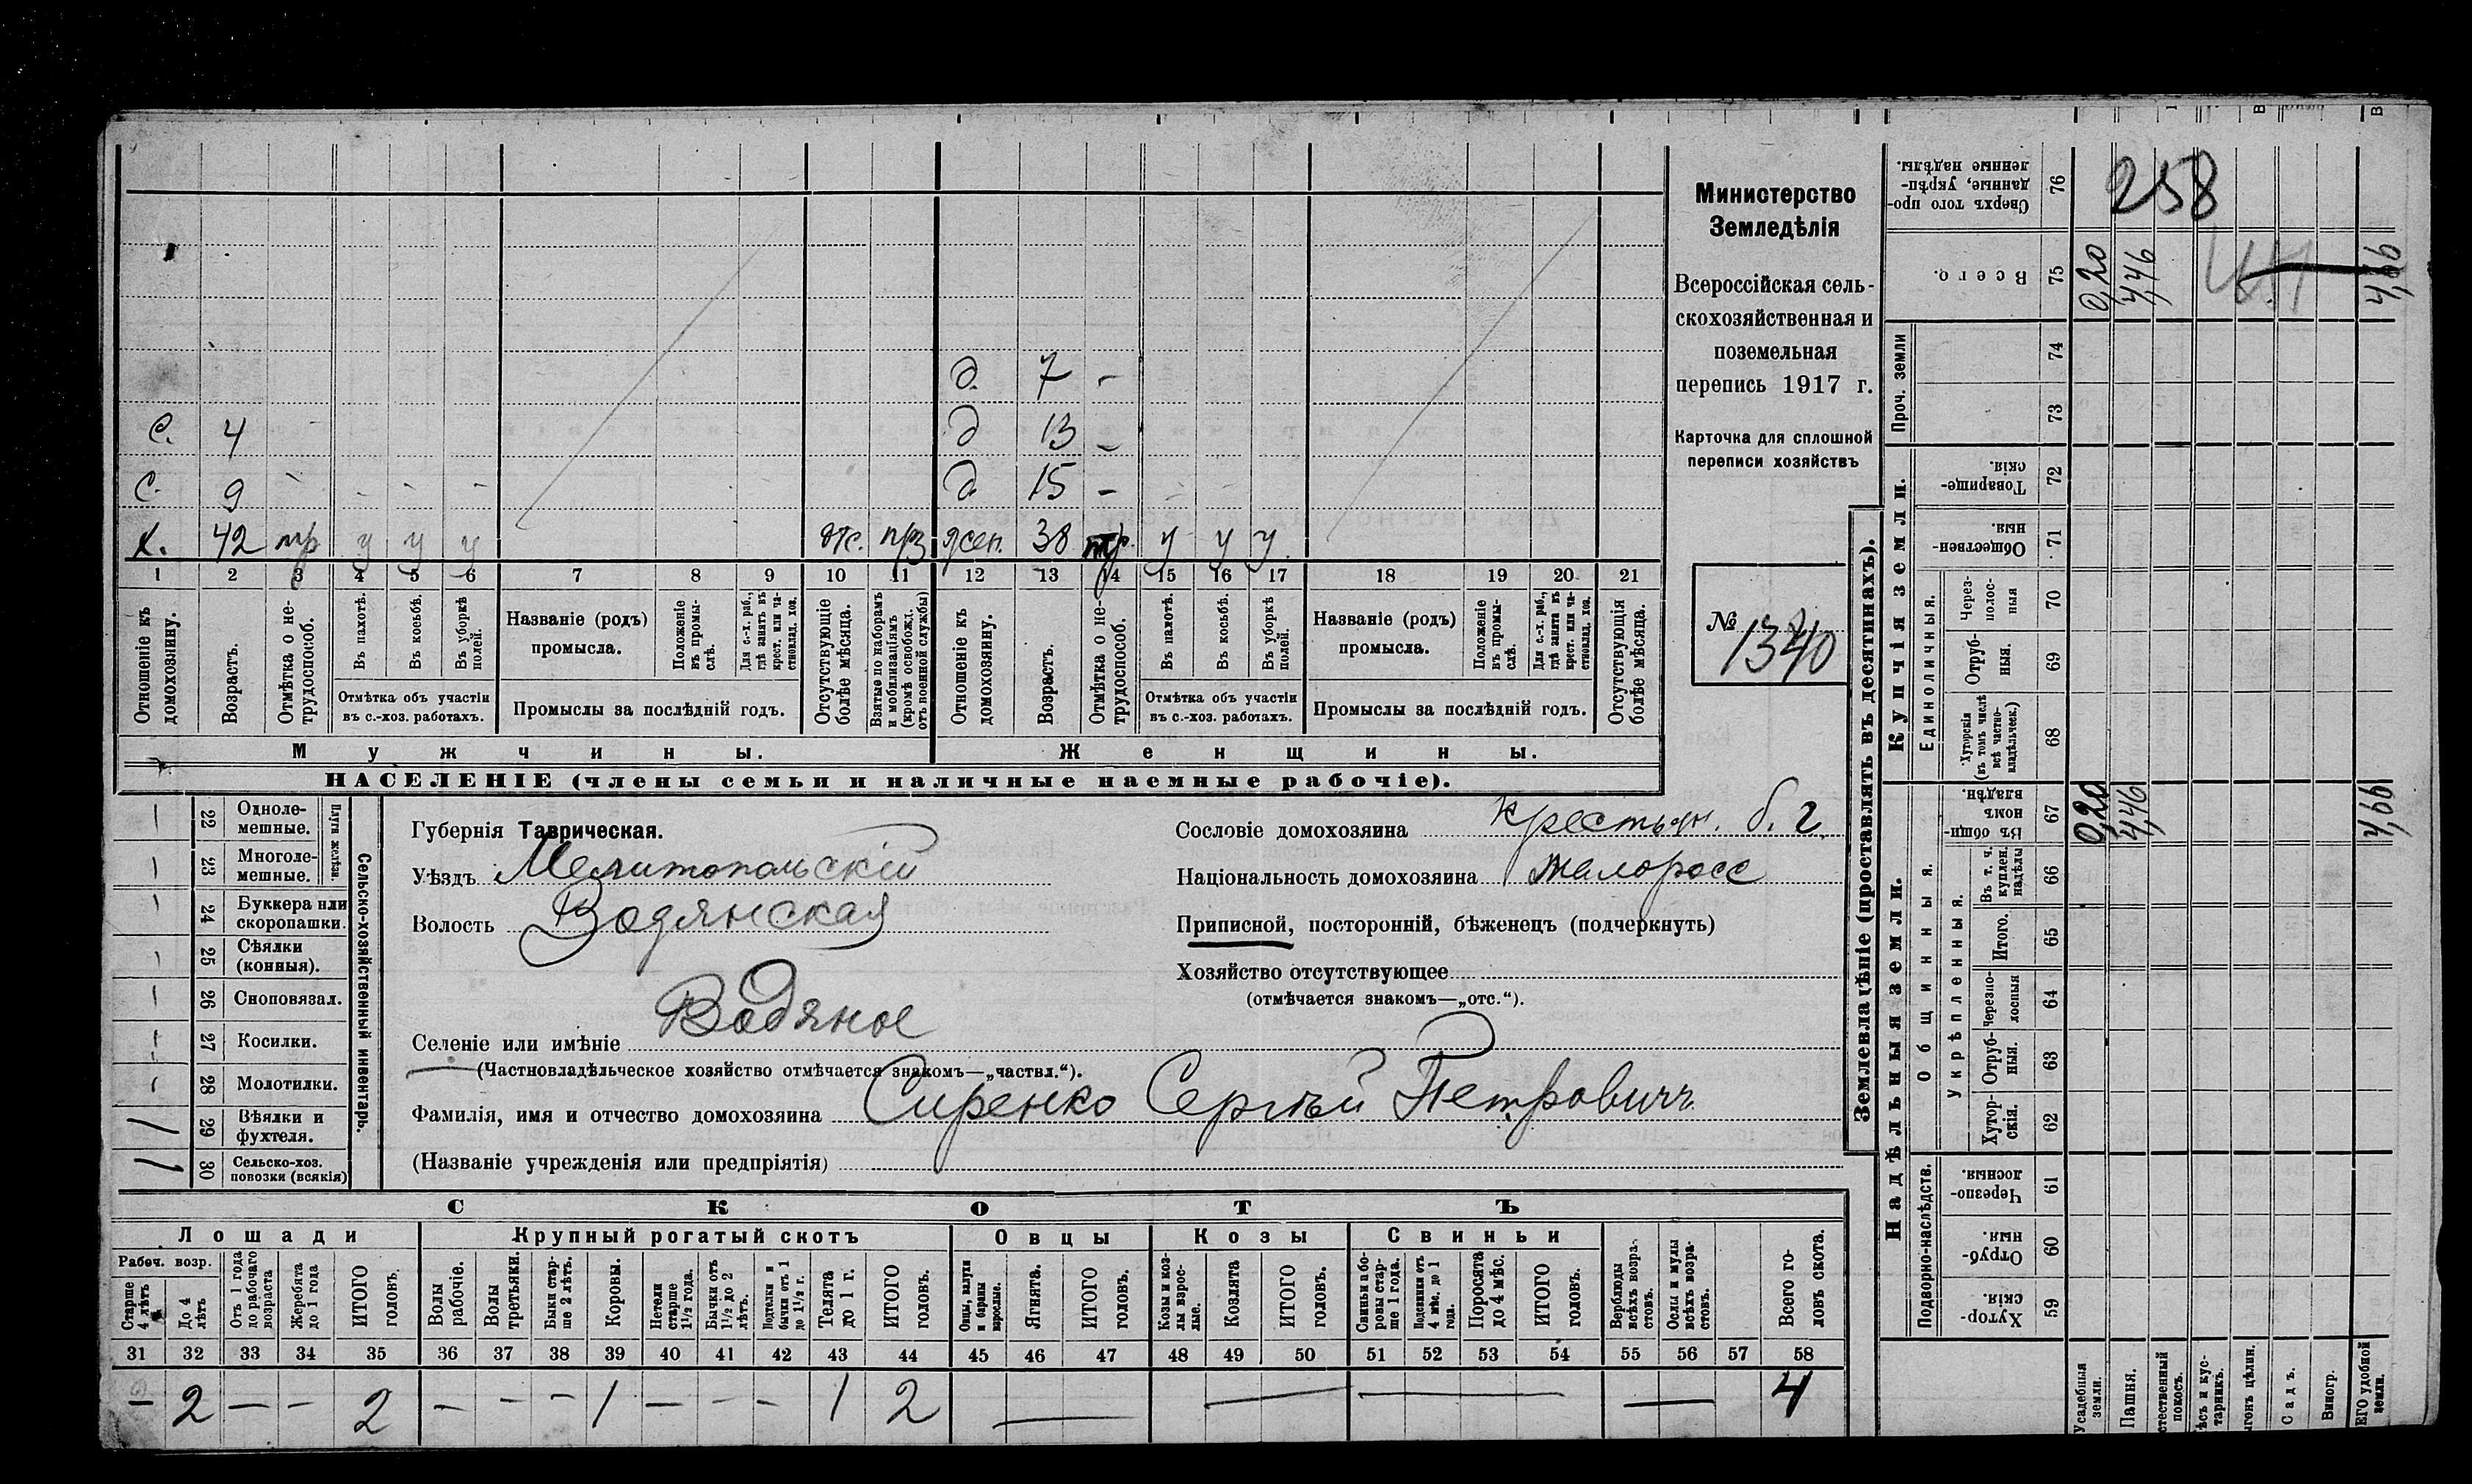 д. 7 -
С. 4 д 13 -
С. 9 - - - - д. 15 -
х. 42 тр у у у отс. прз жен. 38 тр. у у у
1 2 3 4 5 6 7 8 9 10 11 12 13 14 15 16 17 18 19 20 21
Отношеніе къ домохозяину.
Возрастъ.
Отмѣтка о не-
трудоспособ.
Въ пахотѣ.
Въ косьбѣ.
Въ уборкѣ
полей.
Отмѣтка объ участіи
въ с.-хоз. работахъ.
Названіе (родъ)
промысла.
Положеніе
въ промы-
слѣ.
Для с.-х. раб.,
гдѣ занятъ въ
крест. или ча-
стновлад. хоз.
Промыслы за послѣдній годъ.
Отсутствующіе
болѣе мѣсяца.
Взятые по наборамъ
и мобилизаціямъ
(кромѣ освобожд.
отъ военной службы)
Отношеніе къ
домохозяину.
Возрастъ.
Отмѣтка о не-
трудоспособ.
Въ пахотѣ.
Въ косьбѣ.
Въ уборкѣ
полей.
Отмѣтка объ участіи
въ с.-хоз. работахъ.
Названіе (родъ)
промысла.
Положеніе
въ промы-
слѣ.
Для с.-х. раб.,
гдѣ занята въ
крест. или ча-
стновлад. хоз.
Промыслы за послѣдній годъ.
Отсутствующія
болѣе мѣсяца.
Мужчины. Женщины.
НАСЕЛЕНІЕ (члены семьи и наличные наемные рабочіе).
Министерство
Земледѣлія
Всероссійская сель-
скохозяйственная и
поземельная
перепись 1917 г.
Карточка для сплошной
переписи хозяйствъ
№ 1340
22 Одноле-
мешные.
23 Многоле-
мешные.
Плуги желѣзн.
24 Буккера или
скоропашки.
25 Сѣялки
(конныя).
26 Сноповязал.
27 Косилки.
28 Молотилки.
/ 29 Вѣялки и
фухтеля.
1 30 Сельско-хоз.
повозки (всякія)
Сельско-хозяйственный инвентарь.
Губернія Таврическая.
Уѣздъ Мелитопольскій
Волость Водянская
Селеніе или имѣніе Водяное
(Частновладѣльческое хозяйство отмѣчается знакомъ—„частвл.“).
Фамилія, имя и отчество домохозяина Сиренко Сергѣй Петровичъ
(Названіе учрежденія или предпріятія)
Сословіе домохозяина крестьян. б. г.
Національность домохозяина малоросс
Приписной, посторонній, бѣженецъ (подчеркнуть)
Хозяйство отсутствующее
(отмѣчается знакомъ—„отс.“).
СКОТЪ
Лошади Крупный рогатый скотъ Овцы Козы Свиньи
Рабоч. возр.
Старше
4 лѣтъ
До 4
лѣтъ
Отъ 1 года
до рабочаго
возраста
Жеребята
до 1 года
ИТОГО
головъ.
Волы
рабочіе.
Волы
третьяки.
Быки стар-
ше 2 лѣтъ.
Коровы.
Нетели
старше
1½ года.
Бычки отъ
1½ до 2
лѣтъ.
Подтелки и
бычки отъ 1
до 1½ г.
Телята
до 1 г.
ИТОГО
головъ.
Овцы, валухи
и бараны
взрослые.
Ягнята.
ИТОГО
головъ.
Козы и коз-
лы взрос-
лые.
Козлята
ИТОГО
головъ.
Свиньи и бо-
ровы стар-
ше 1 года.
Подсвинки отъ
4 мѣс. до 1
года.
Поросята
до 4 мѣс.
ИТОГО
головъ.
Верблюды
всѣхъ возра-
стовъ.
Ослы и мулы
всѣхъ возра-
стовъ.
Всего го-
ловъ скота.
31 32 33 34 35 36 37 38 39 40 41 42 43 44 45 46 47 48 49 50 51 52 53 54 55 56 57 58
— 2 — — 2 — — — 1 — — — 1 2 — — — — 4
Землевладѣніе (проставлять въ десятинахъ).
Купчія земли.
Надѣльныя земли.
Сверхъ того про-
данные, укрѣп-
ленные надѣлы.
76
258
Всего.
75
0,20
4,46
4,66
Проч. земли
74
73
Товарище-
скія.
72
Обществен-
ныя.
71
Единоличныя.
Через-
полос-
ныя
70
Отруб-
ныя.
69
Хуторскія
(въ томъ числѣ
всѣ частно-
владѣльческ.)
68
Общинныя.
Въ общи-
номъ
владѣн.
67
0,20
4,46
4,66
Укрѣпленныя.
Въ т. ч.
куплен.
надѣлы
66
Итого.
65
Черезпо-
лосныя
64
Отруб-
ныя.
63
Хутор-
скія.
62
Подворно-наслѣдств.
Черезпо-
лосныя.
61
Отруб-
ныя.
60
Хутор-
скія.
59
Усадебныя
земли.
Пашня.
стественный
покосъ.
ѣсъ и кус-
тарникъ.
ыгонъ цѣлин.
Садъ.
Виногр.
ЕГО удобной
земли.